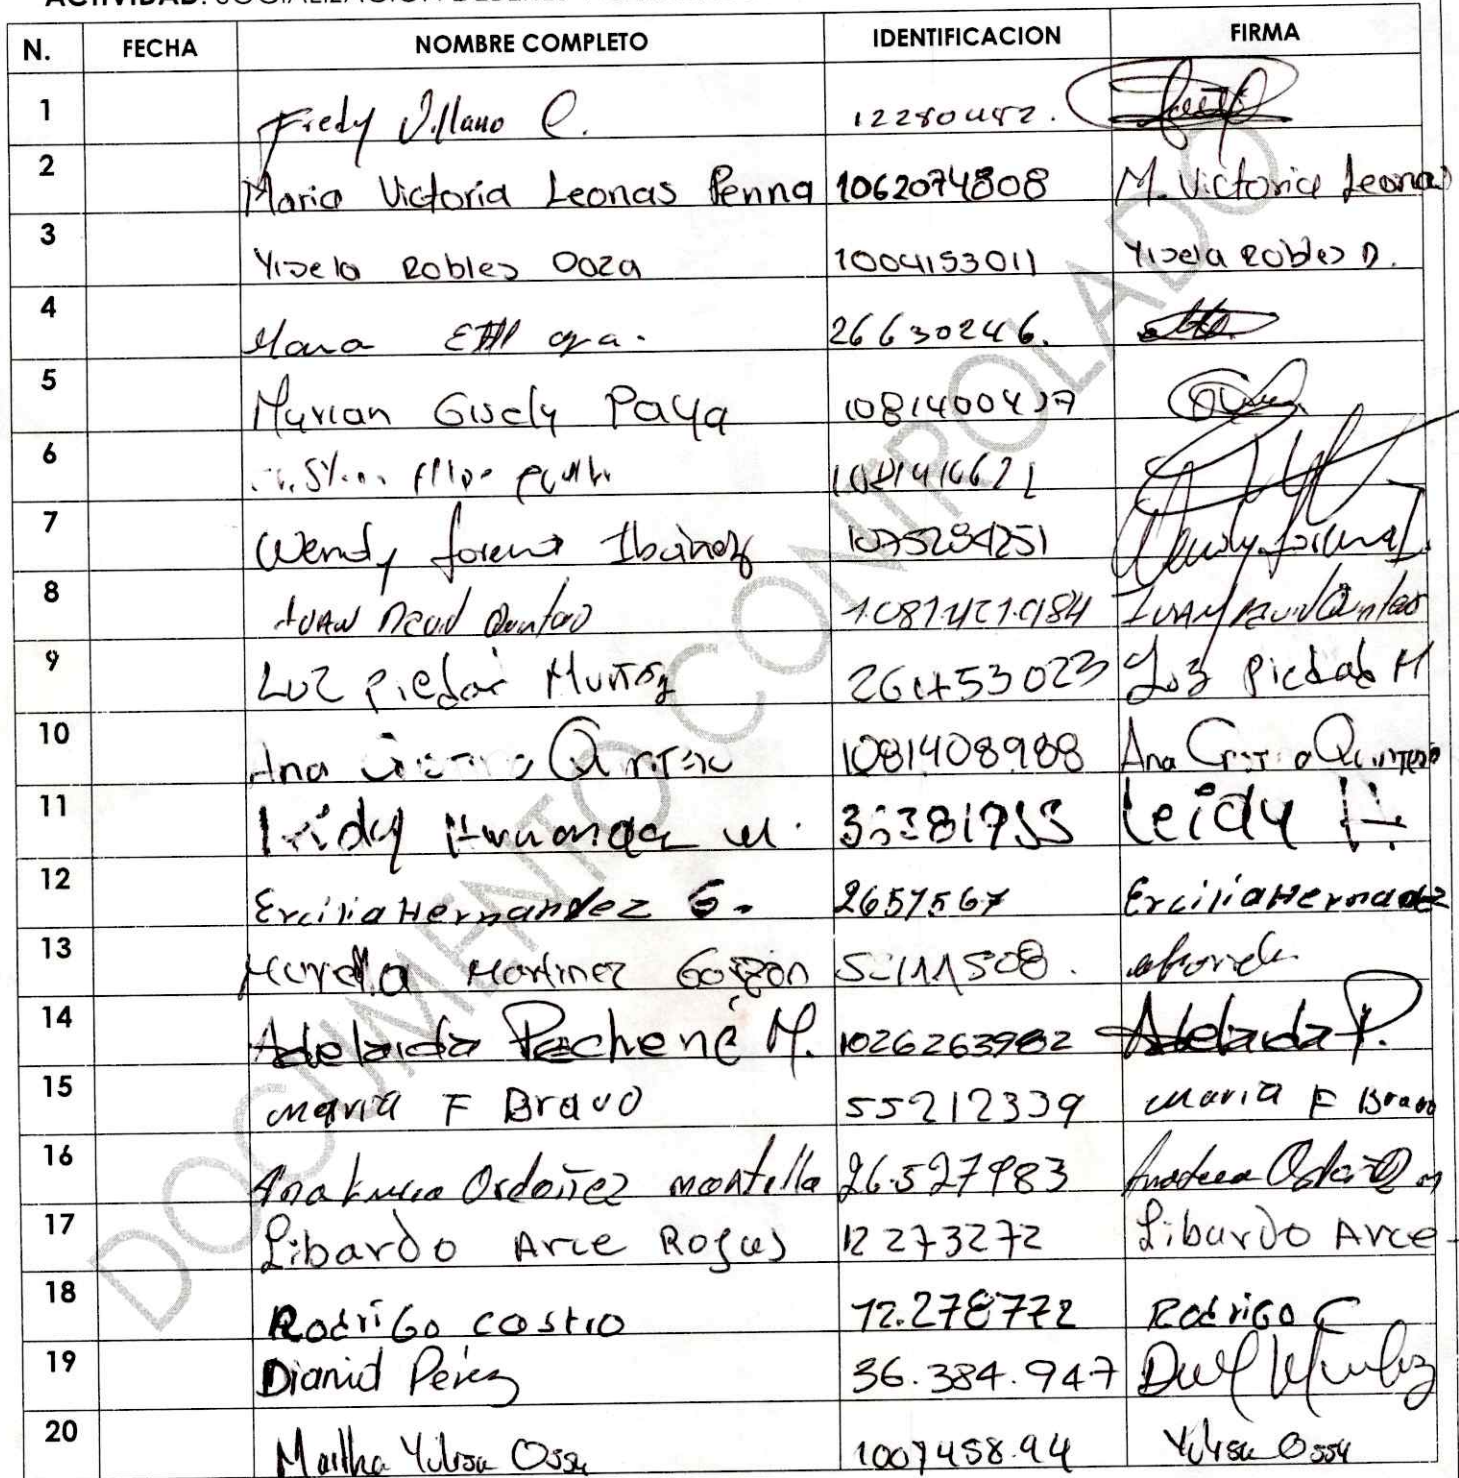 ACTIVIDAD: SOCIALIZACION
N. FECHA NOMBRE COMPLETO IDENTIFICACION FIRMA
1 Fredy Villano C. 12280482.
2 Maria Victoria Leonas Penna 1062074808 M. Victoria Leonas
3 Yisela Robles Daza 1004153011 Yisela Robles D.
4 26630246.
5 Myrian Gisely Paya
6
7 Wendy Lorena Ibañez 1075284251 Wendy Lorena I.
8 JUAN David Quintero JUAN David Quintero
9 Luz Piedad Muñoz 26453023 Luz Piedad M
10 Ana Quintero 1081408988 Ana Quintero
11 Leidy Leidy H.
12 Ercilia Hernandez G. 2657567 Ercilia Hernadez
13 Martinez Garzon
14 Adelaida Pachené M. 1026263982 Adelaida P.
15 Maria F Bravo 55212339 Maria F Bravo
16 Ana Lucia Ordoñez Montilla 26.527983
17 Libardo Arce Rojas 12273272 Libardo Arce
18 RodriGo Castro 12.278772 RodriGo C
19 Pérez 36.384.947
20 Martha Yulisa Ossa 1007458.94 Yulisa Ossa
DOCUMENTO CONTROLADO